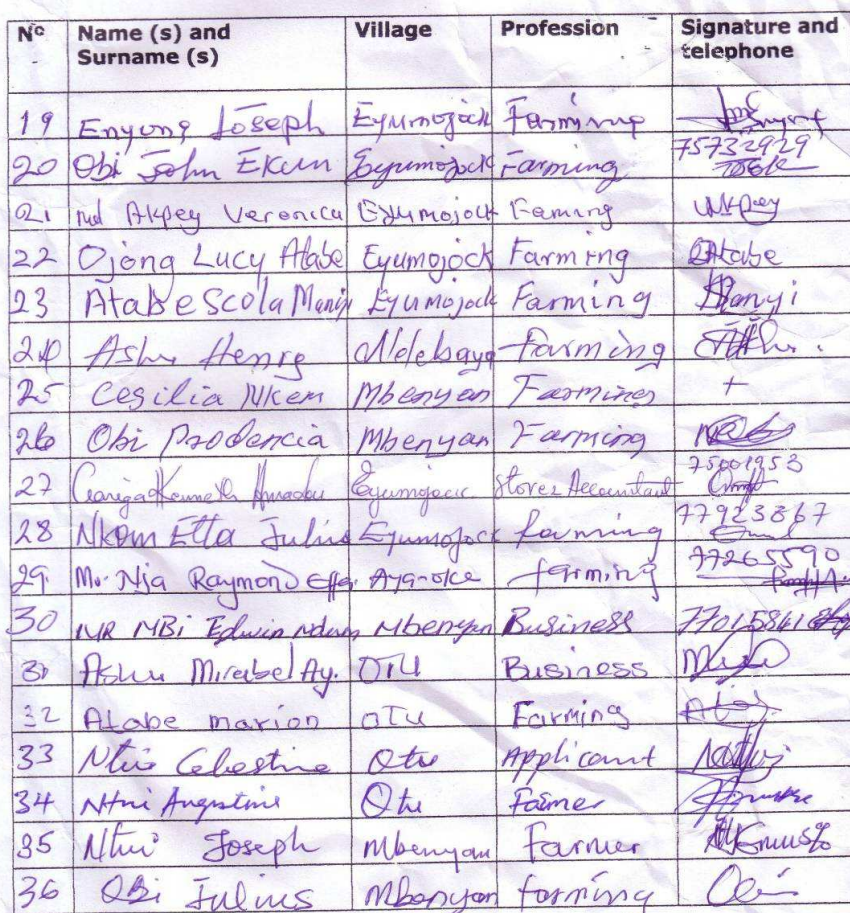 N° Name (s) and Surname (s) Village Profession Signature and telephone
19 Enyong Joseph Eyumojock Farming
20 Obi John Ekun Eyumojock Farming 75732929
21 Akpey Veronica Eyumojock Faming
22 Ojong Lucy Atabe Eyumojock Farming Atabe
23 Atabe Scola Manyi Eyumojock Farming Manyi
24 Ashu Henry Farming
25 Cesilia Nkem Mbenyan Farming +
26 Obi Prodencia Mbenyan Farming
27 Kenneth Eyumojock Stores Accountant 75001953
28 Nkom Etta Julius Eyumojock farming 77923867
29 Mr. Nja Raymond Effa Aya-oke farming 77265590
30 MR MBi Edwin Mbenyan Business
31 Ashu Mirabel Ay. OTU Business
32 Atabe marion OTU Farming
33 Ntui Celestine Otu Applicant
34 Ntui Augustine Otu Farmer
35 Ntui Joseph Mbenyan Farmer
36 Obi Julius Mbenyan farming